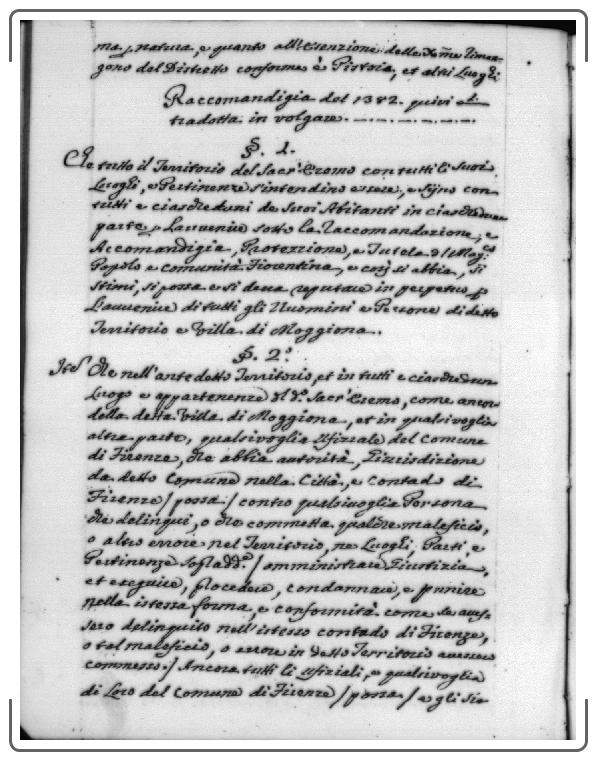 ma p natura, e quanto all'Esenzione delle Xme Timan-
gono del Distretto conforme è Pistoia, et altri Luoghi
Raccomandigia del 1382. quivi
tradotta in volgare.
§. 1.
Che tutto il Territorio del Sacr'Eremo con tutti li Suoi
Luoghi, e Pertinenze s'intendino essere, e Sijno con
tutti e ciascheduni de Suoi Abitanti in ciascheduna
parte p L'avvenire sotto la Raccomandazione, e
Accomandigia, Protezzione, e Tutela d'l Mag:co
Popolo e comunità Fiorentina, e così si abbia, si
stimi, si possa e si deva reputare in perpetuo p
L'avvenire di tutti gli Huomini e Persone di detto
Territorio e Villa di Moggiona.
§. 2.°
Che nell'antedetto Territorio, et in tutti e ciaschedun
Luogo e appartenenze d'l d.° Sacr'Eremo, come ancor
della detta Villa di Moggiona, et in qualsivoglia
altra parte, qualsivoglia Ufiziale del Comune
di Firenze, che abbia autorità, Giurisdizione
da detto Comune nella Città, e Contado di
Firenze / possa / contro qualsivoglia Persona
che delinqui, o che commetta qualche maleficio,
o altro errore nel Territorio, ne Luoghi, Parti e
Pertinenze / amministrare Giustizia,
et eseguire, procedere, condannare, e punire
nella istessa forma, e conformità come se aves-
sero delinquito nell'istesso contado di Firenze,
o tal maleficio, o errore in detto Territorio avessero
commesso / Ancora tutti li Ufiziali, e qualsivoglia
di Loro del Comune di Firenze / possa / e gli sia